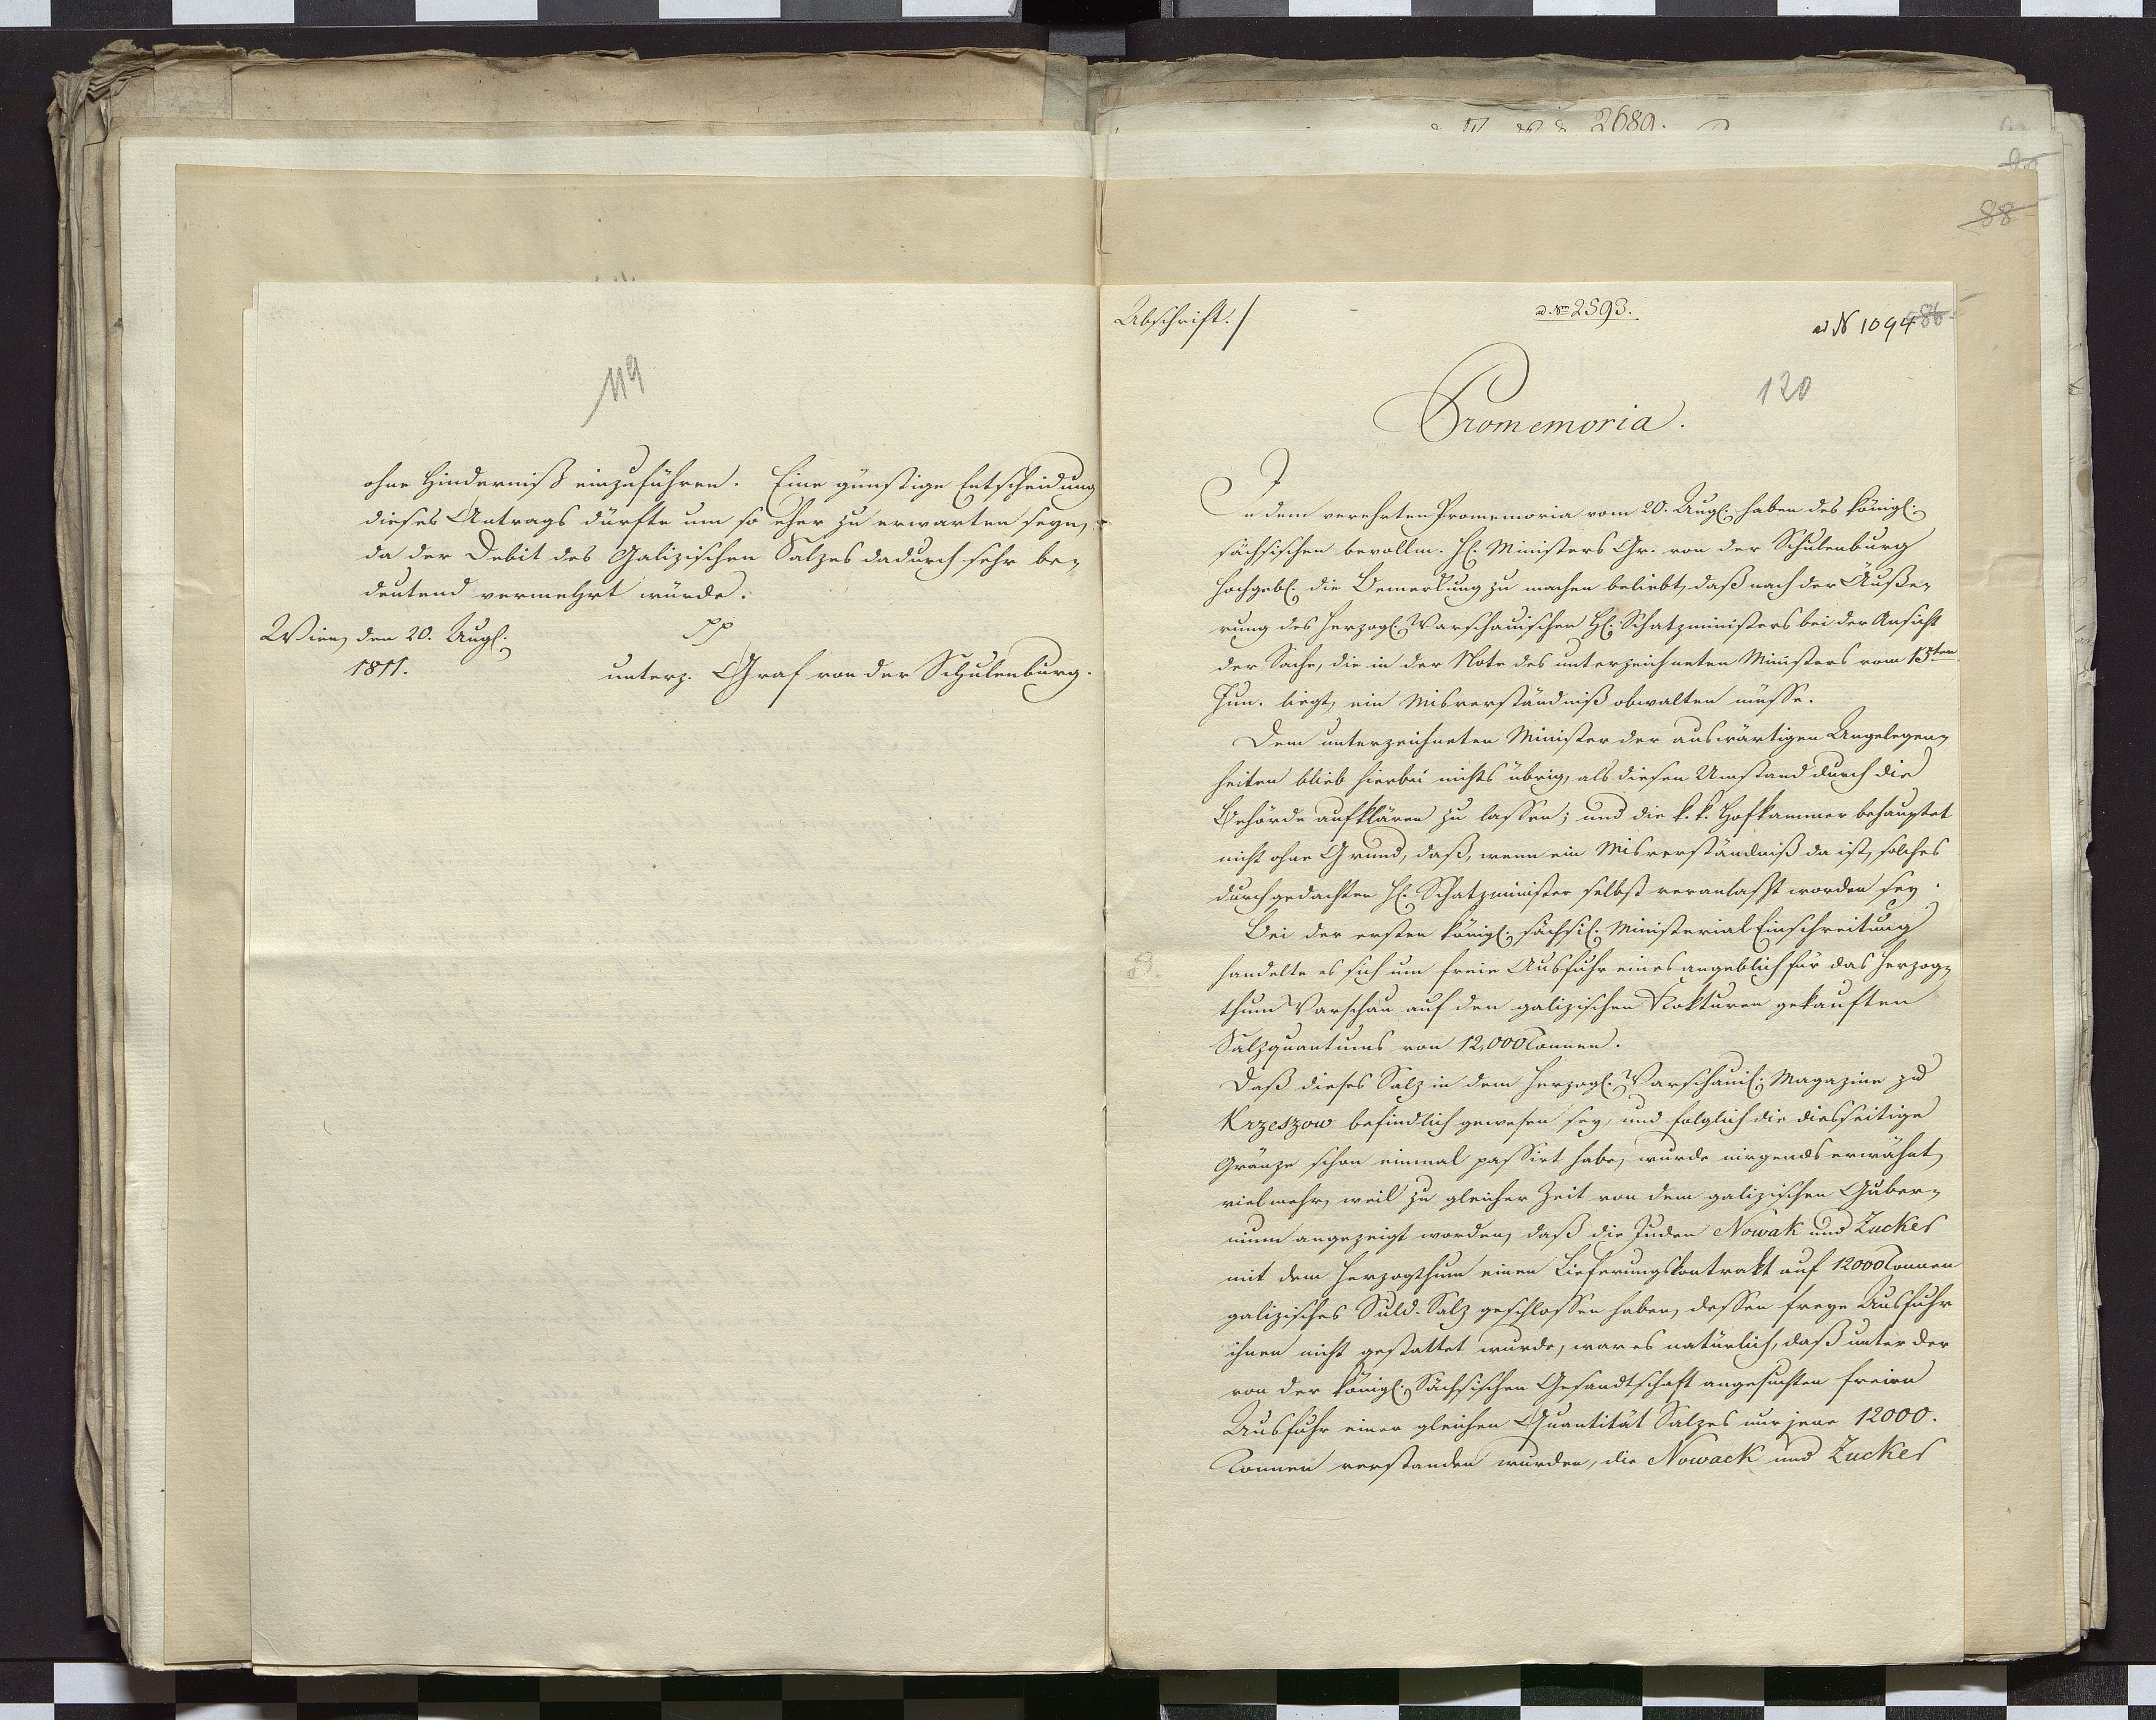 119
ohne Hinderniß einzuführen. Eine günstige Entscheidung
dieses Antrags dürfte um so eher zu erwarten seyn,
da der Debit des Galizischen Salzes dadurch sehr be-
deutend vermehrt würde.
Wien, den 20. Augl.
pp
1811.
unterz. Graf von der Schulenburg.
2689.
88
Abschrift./
ad Nm 2593.
ad N 1094
86
120
Promemoria.
In dem verehrten Promemoria vom 20. Augl. haben des königl.
sächsischen bevollm. H. Ministers Gr. von der Schulenburg
Hochgebl. die Bemerkung zu machen beliebt, daß nach der Äuße-
rung des Herzogl. Warschauischen H. Schatzministers bei der Ansicht
der Sache, die in der Note des unterzeichneten Ministers vom 15ten
Jun. liegt, ein Misverständniß obwalten müsse.
Dem unterzeichneten Minister der auswärtigen Angelegen-
heiten blieb hierbei nichts übrig, als diesen Umstand durch die
Behörde aufklären zu lassen; und die k. k. Hofkammer behauptet
nicht ohne Grund, daß, wenn ein Misverständniß da ist, solches
durch gedachten H. Schatzminister selbst veranlaßt worden sey.
Bei der ersten königl. sächsis. Ministerial Einschreitung
handelte es sich um freie Ausfuhr eines angeblich für das Herzog-
3.
thum Warschau auf den galizischen Kokturen gekauften
Salzquantums von 12,000 Tonnen.
Daß dieses Salz in dem Herzogl. Warschauis. Magazine zu
Krzeszow befindlich gewesen sey, und folglich die diesseitige
Gränze schon einmal passirt habe, wurde nirgends erwähnt,
vielmehr, weil zu gleicher Zeit von dem galizischen Guber-
nium angezeigt worden, daß die Juden Nowak und Zuckes
mit dem Herzogthum einen Lieferungskontrakt auf 12000 Tonnen
galizisches Sud-Salz geschlossen haben, dessen freye Ausfuhr
ihnen nicht gestattet wurde, war es natürlich, daß unter der
von der königl. Sächsischen Gesandtschaft angesuchten freien
Ausfuhr einer gleichen Quantität Salzes nur jene 12000.
Tonnen verstanden wurden, die Nowack und Zuckes